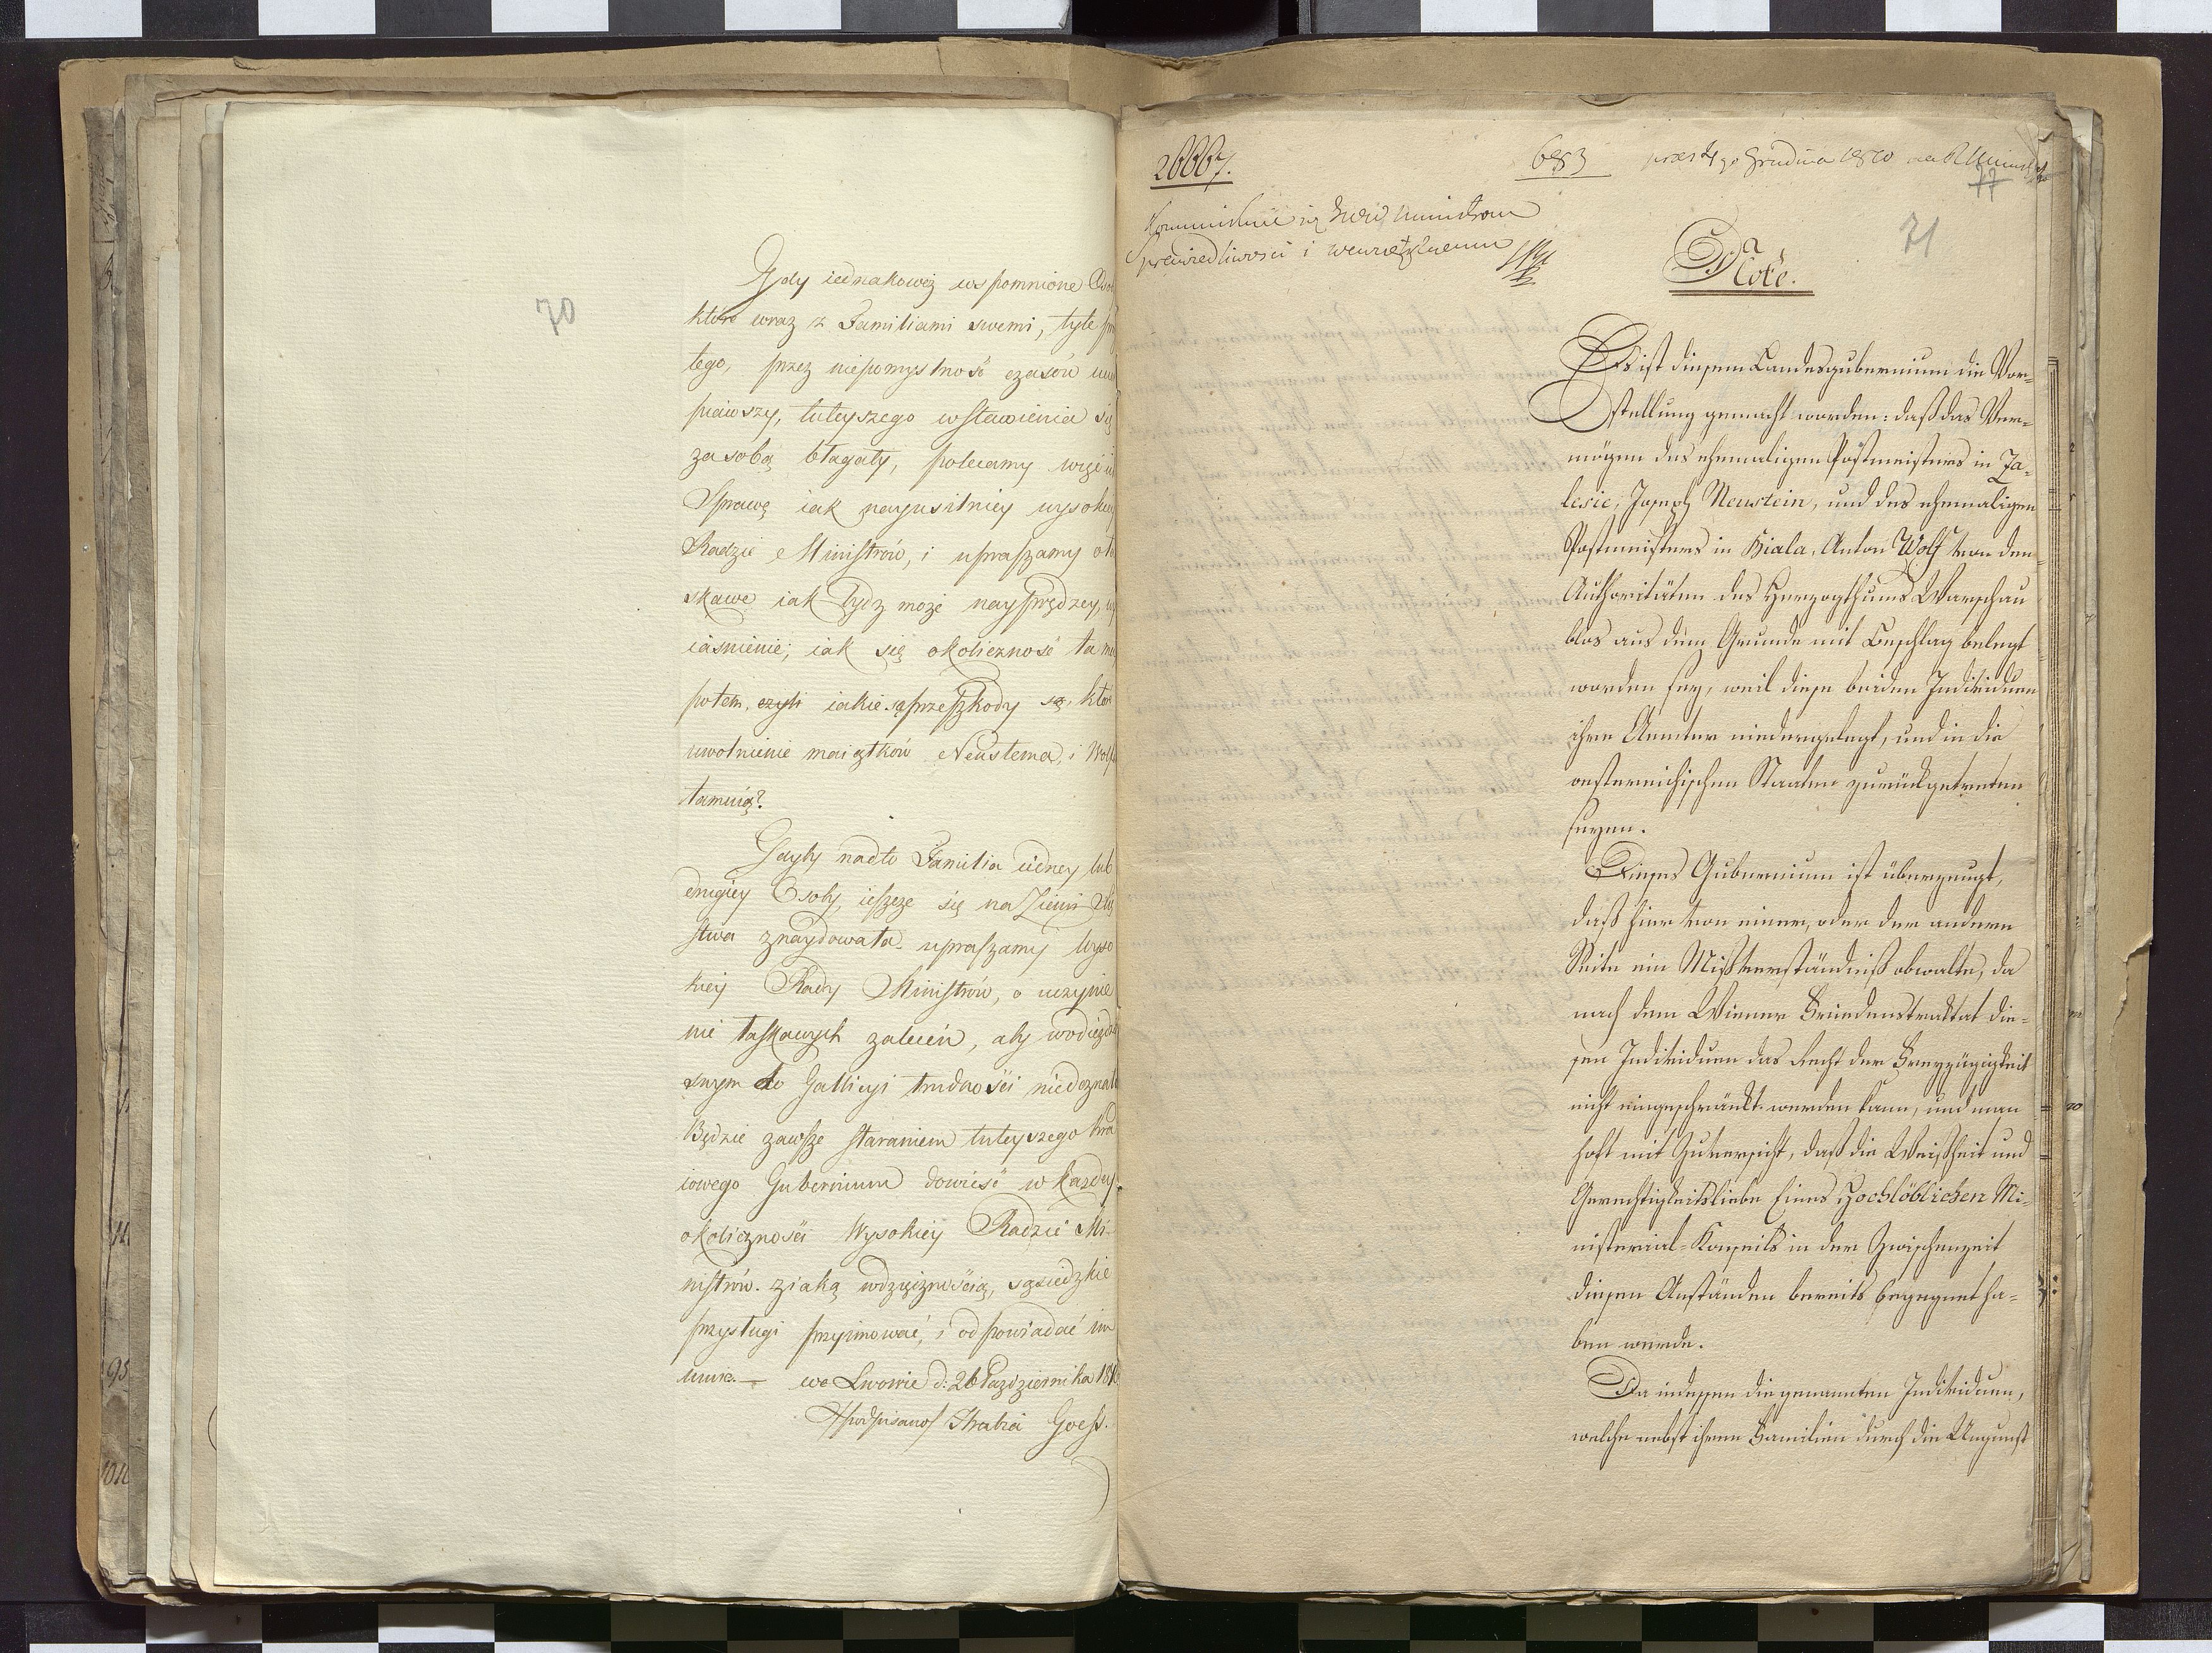 70
Gdy iednakowoż wspomnione Oso
które wraz z Familiami swemi, tyle
tego, przez niepomyslność czasów
piawszy, tuteyszego wstawienia się
za sobą błagały, polecamy więc
Sprawę iak nayusilniey wysokiey
Radzie Ministrów, i upraszamy o ła
skawe iak bydź może nayprędzey, wy
iaśnienie; iak się okoliczność ta ma
potem, czyli iakie są przeszkody są, któr
uwolnienie maiątków Neusteina, i Wolfa
tamuią?
Gdyby nadto Familia iedney lub
drugiey Osoby, ieszcze się na Ziemi Xię
stwa znaydowała upraszamy Wyso
kiey Rady Ministrów, o uczynie
nie łaskawych zaleceń, aby w odieźdz
swym do Gallicyi trudności niedoznała
Będzie zawsze staraniem tuteyszego Kra
iowego Gubernium dowieść w każdey
okoliczności Wysokiey Radzie Mi
nistrów. z iaką wdzięcznością, sąsiedzkie
przysługi przyimować, i odpowiadać im
umie. — we Lwowie d: 26 Października 1810
/podpisano/ Hrabia Goess.
20007.
653
praes 4go Grudnia 1810 na R Minist
77
71
Kommunikuie się JWW Ministrom
Sprawiedliwości i wewnętrznemu
Note.
Es ist diesem Landesgubernium die Vor-
stellung gemacht worden: daß das Ver-
mögen des ehemaligen Postmeisters in Za-
lesie, Joseph Neustein, und des ehemaligen
Postmeisters in Biala, Anton Wolf von den
Authoritäten des Herzogthums Warschau
blos aus dem Grunde mit Beschlag belegt
worden sey, weil diese beiden Individuen
ihre Aemter niedergelegt, und in die
oesterreichischen Staaten zurückgetreten
seyen.
Dieses Gubernium ist überzeugt,
daß hier von einer, oder der andern
Seite ein Mißverständniß obwalte, da
nach dem Wiener Friedenstraktat die-
sen Individuen das Recht der Freyzügigkeit
nicht eingeschränkt werden kann, und man
hoft mit Zuversicht, daß die Weißheit und
Gerechtigkeitsliebe Eines Hochlöblichen Mi-
nisterial-Konseils in der Zwischenzeit
diesen Anständen bereits begegnet ha-
ben werde.
Da indessen die genannten Individuen,
welche nebst ihren Familien durch die Ungunst